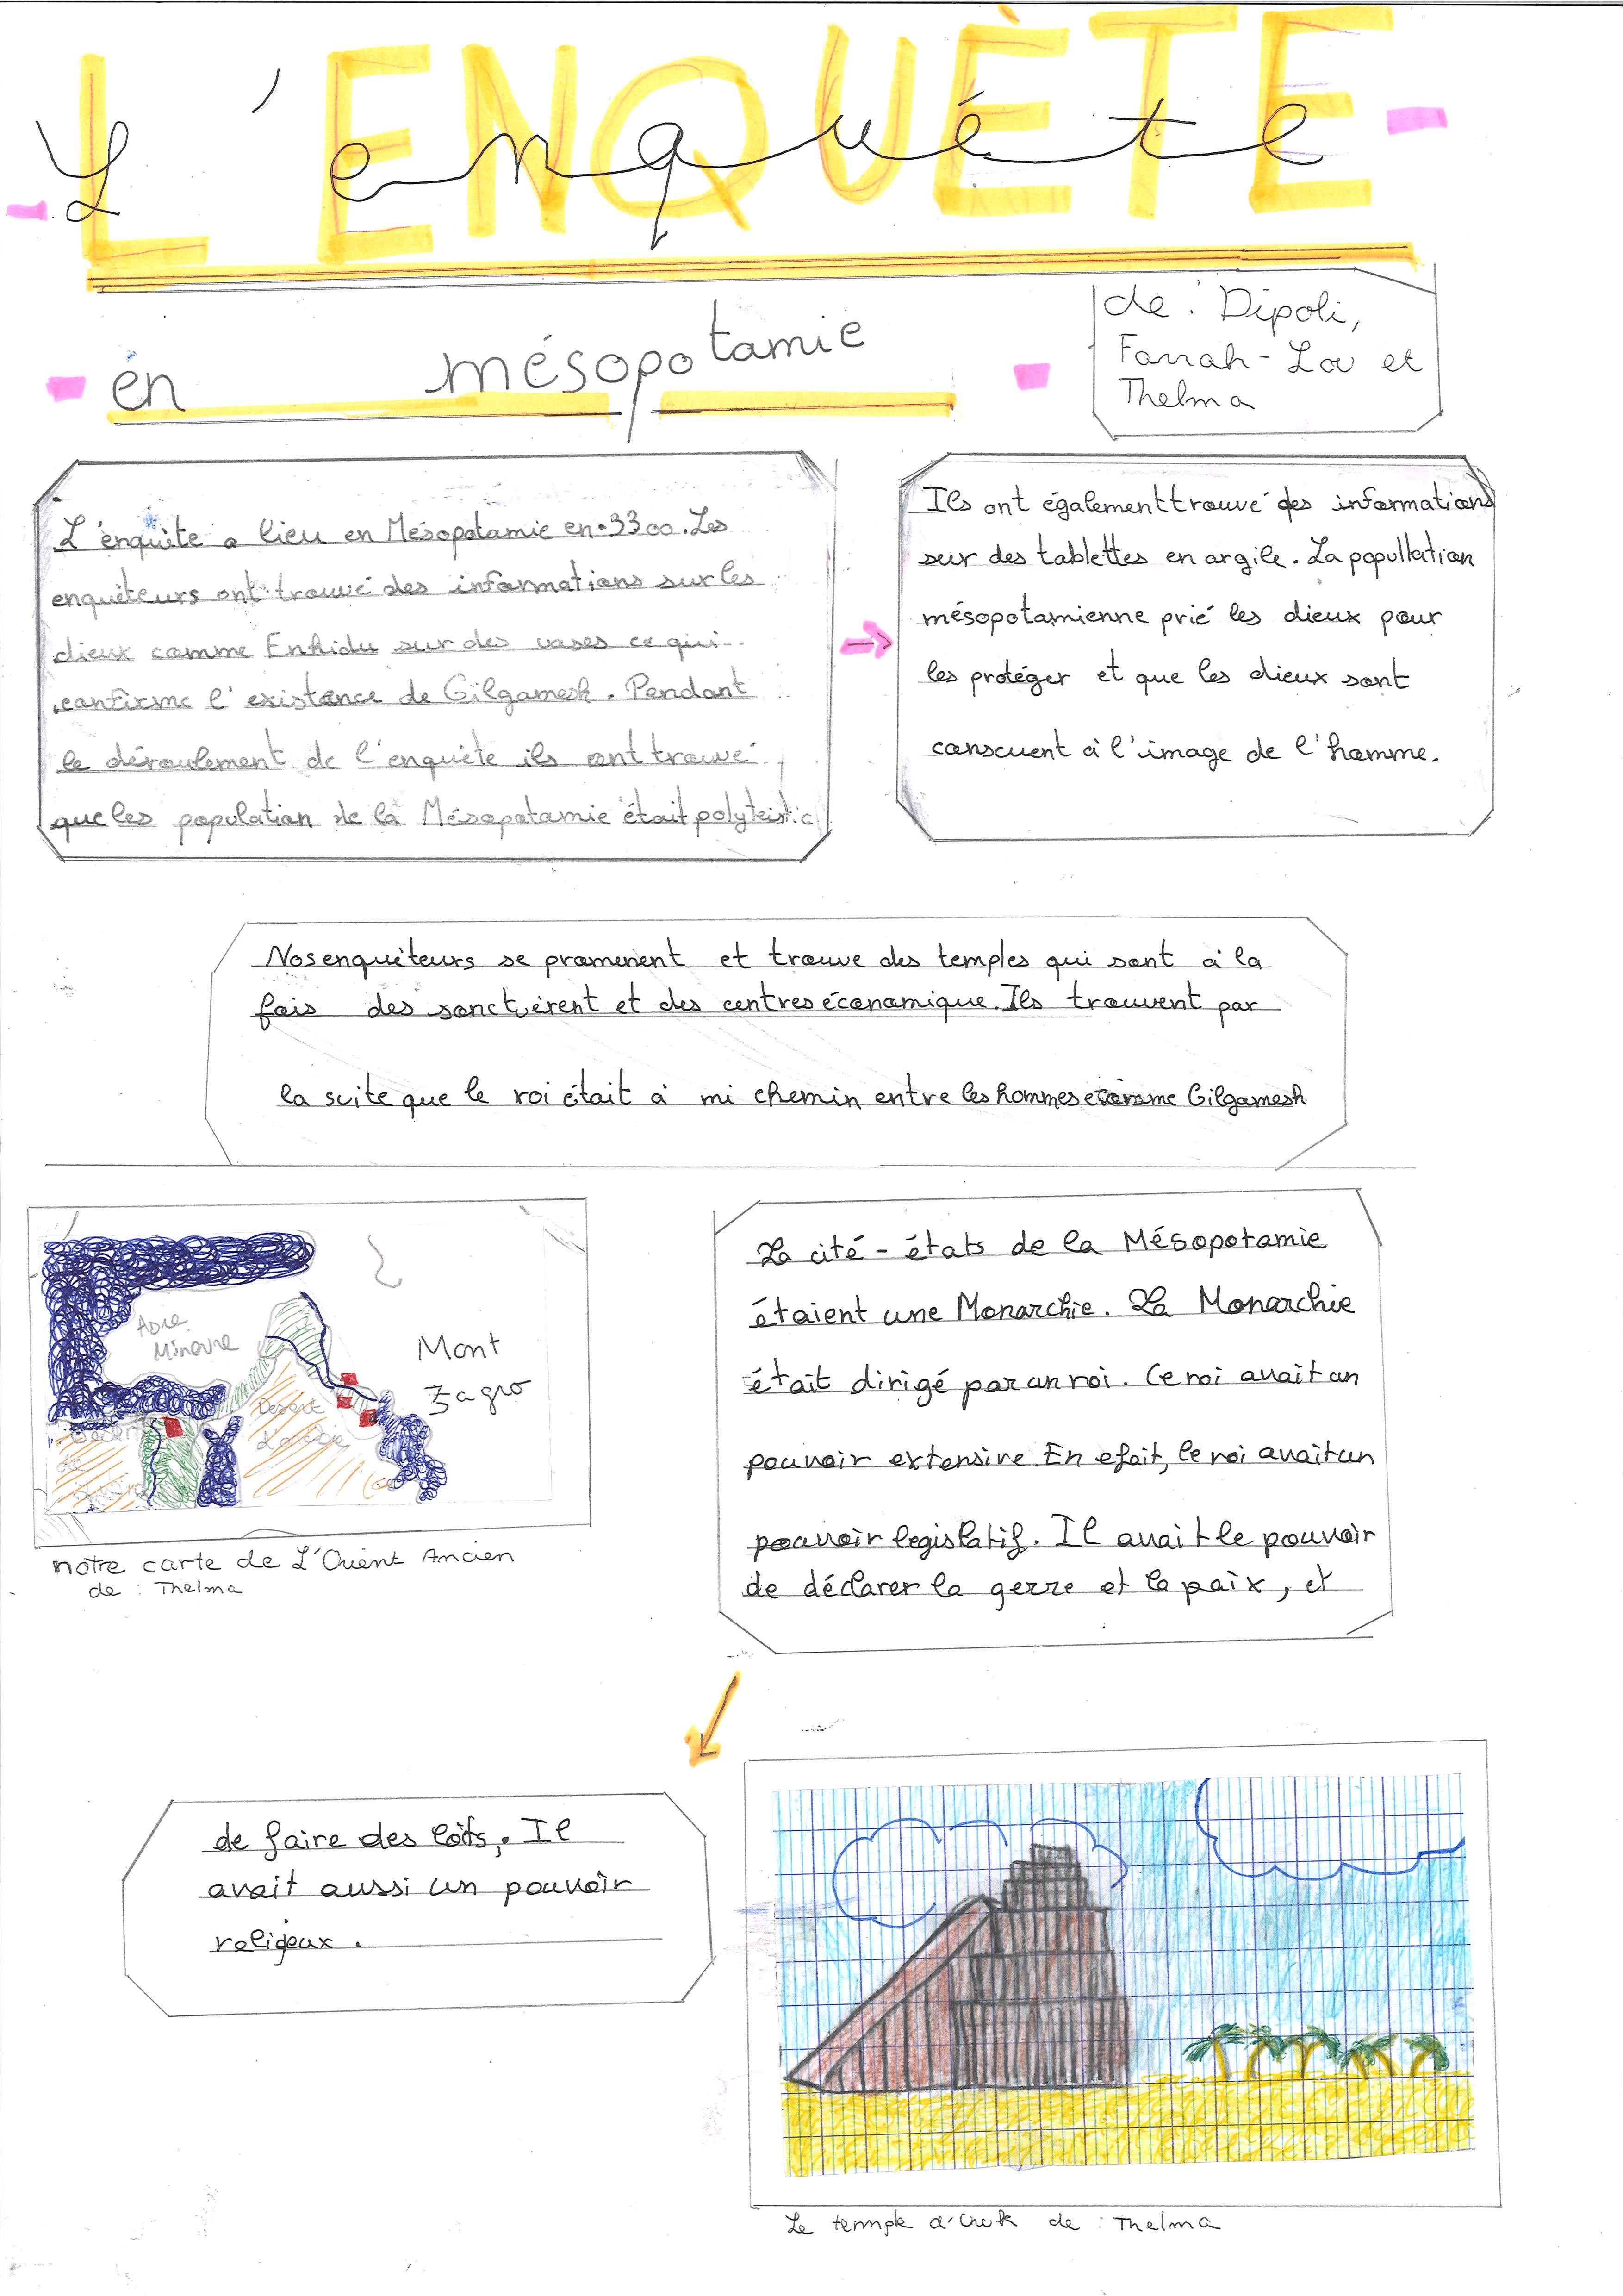 L'ENQUÈTE
L'enquéte
en mésopotamie
de : Dipoli,
Farrah-Lou et
Thelma
L'enquète a lieu en Mésopotamie en -3300. Les
enquèteurs ont trouvé des informations sur les
dieux comme Enkidu sur des vases ce qui
confirme l'existance de Gilgamesh. Pendant
le déroulement de l'enquète ils ont trouvé
que les population de la Mésopotamie était polyteistic
Ils ont également trouvé des informations
sur des tablettes en argile. La popultation
mésopotamienne prié les dieux pour
les protéger et que les dieux sont
conscuent à l'image de l'homme.
Nos enquèteurs se promenent et trouve des temples qui sont à la
fois des sanctuèrent et des centres économique. Ils trouvent par
la suite que le roi était à mi chemin entre les hommes Gilgamesh
La cité-états de la Mésopotamie
étaient une Monarchie. La Monarchie
était dirigé par un roi. Ce roi avait un
pouvoir extensive. En efait, le roi avait un
pouvoir legislatif. Il avait le pouvoir
de déclarer la gerre et la paix, et
Asie
Mineure
Mont
Zagro
Desert
Desert
notre carte de L'Orient Ancien
de : Thelma
de faire des loits, Il
avait aussi un pouvoir
religeux.
Le temple d'Uruk de : Thelma